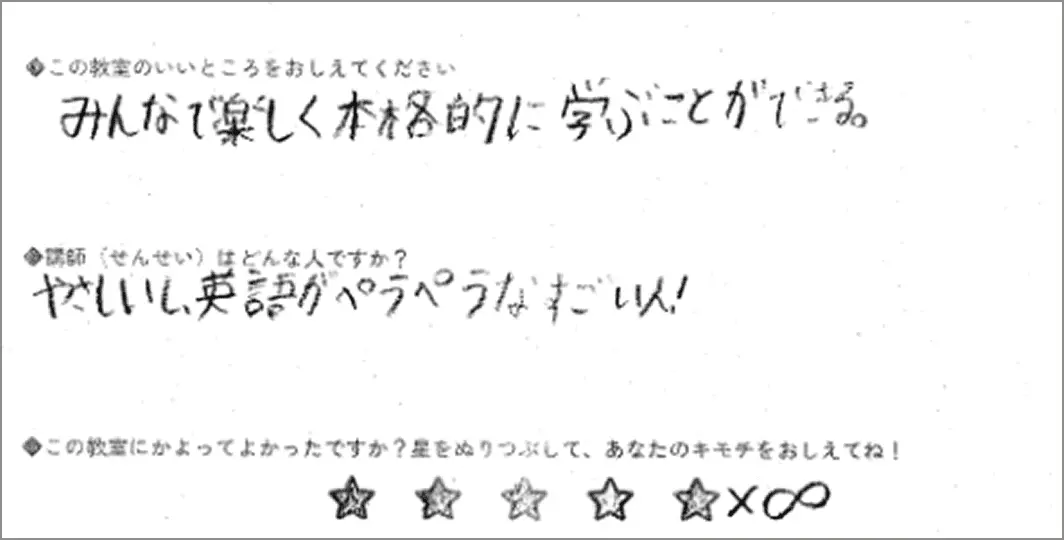 ◆この教室のいいところをおしえてください
みんなで楽しく本格的に学ぶことができる。
◆講師（せんせい）はどんな人ですか？
やさしいし、英語がペラペラなすごい人！
◆この教室にかよってよかったですか？星をぬりつぶして、あなたのキモチをおしえてね！
☆ ☆ ☆ ☆ ☆×∞